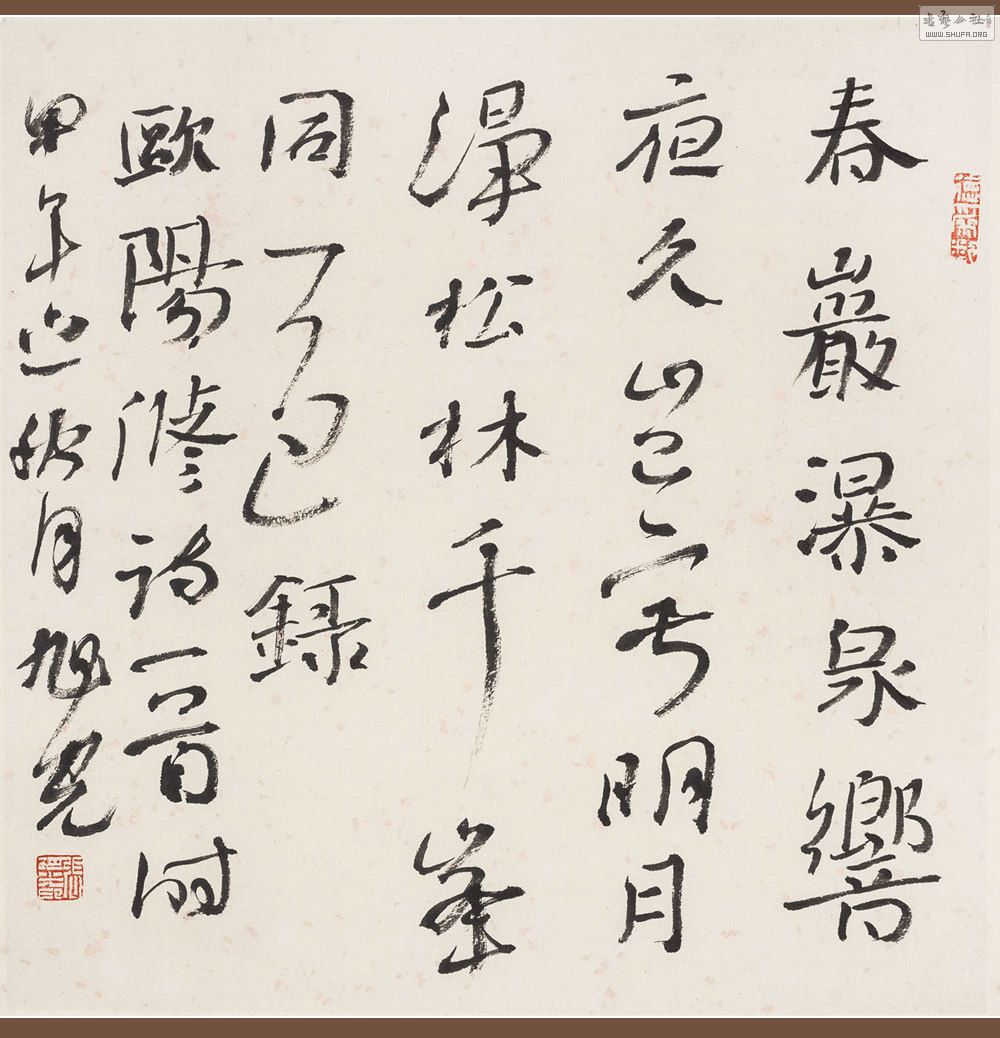 春巖瀑泉響
夜久山已寂明月
淨松林千峯
同一色錄
歐陽修詩一首時
甲午年近秋月旭光
書藝公社
WWW.SHUFA.ORG